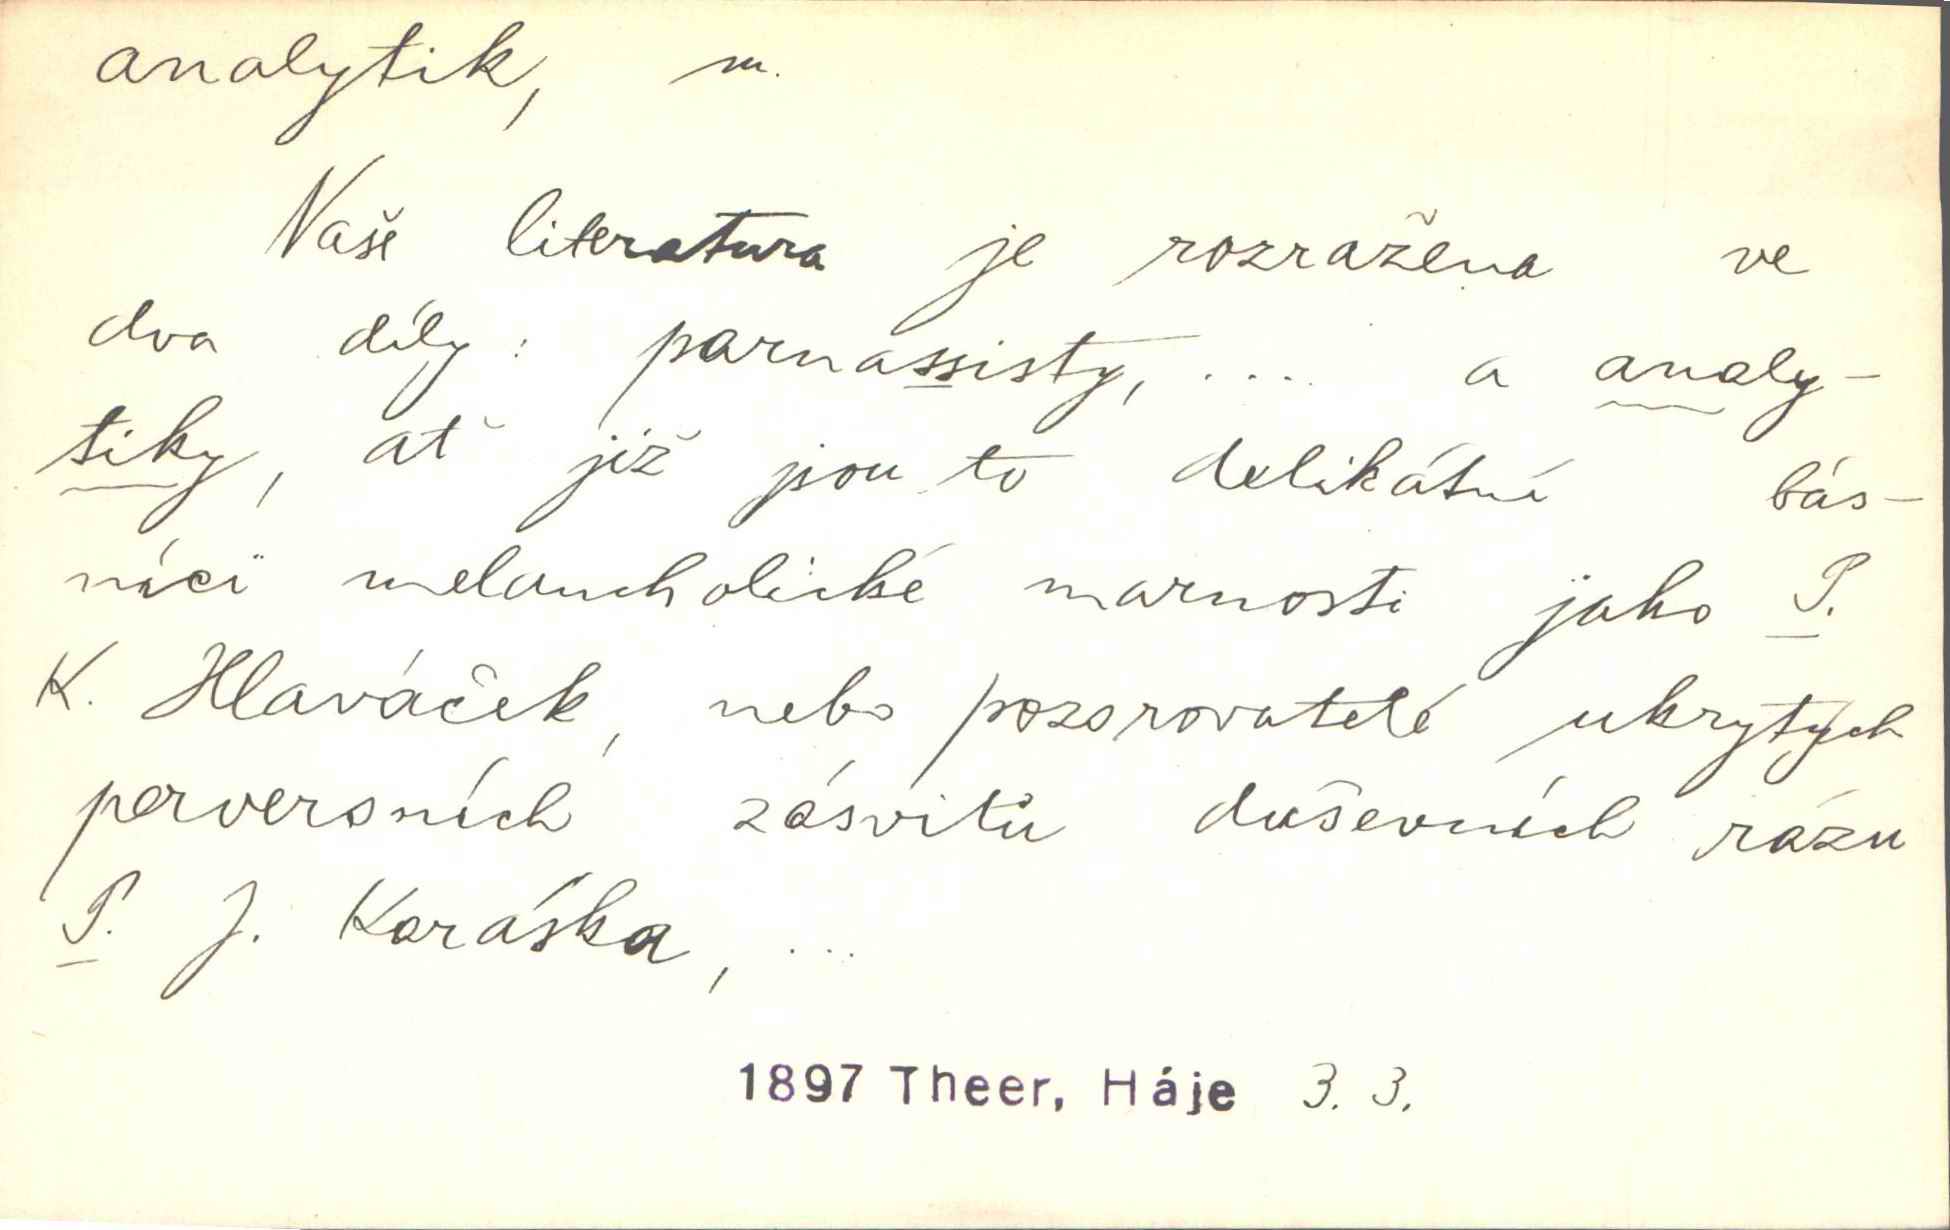 analytik, m.
Naše literatura je rozražena ve
dva díly: parnassisty, .... a analy-
tiky, ať již jsou to delikátní bás-
níci melancholické marnosti jako P.
K. Hlaváček, nebo pozorovatelé ukrytých
perversních zásvitů duševních rázu
P. J. Karáska, ...
1897 Theer, Háje 3. 3.